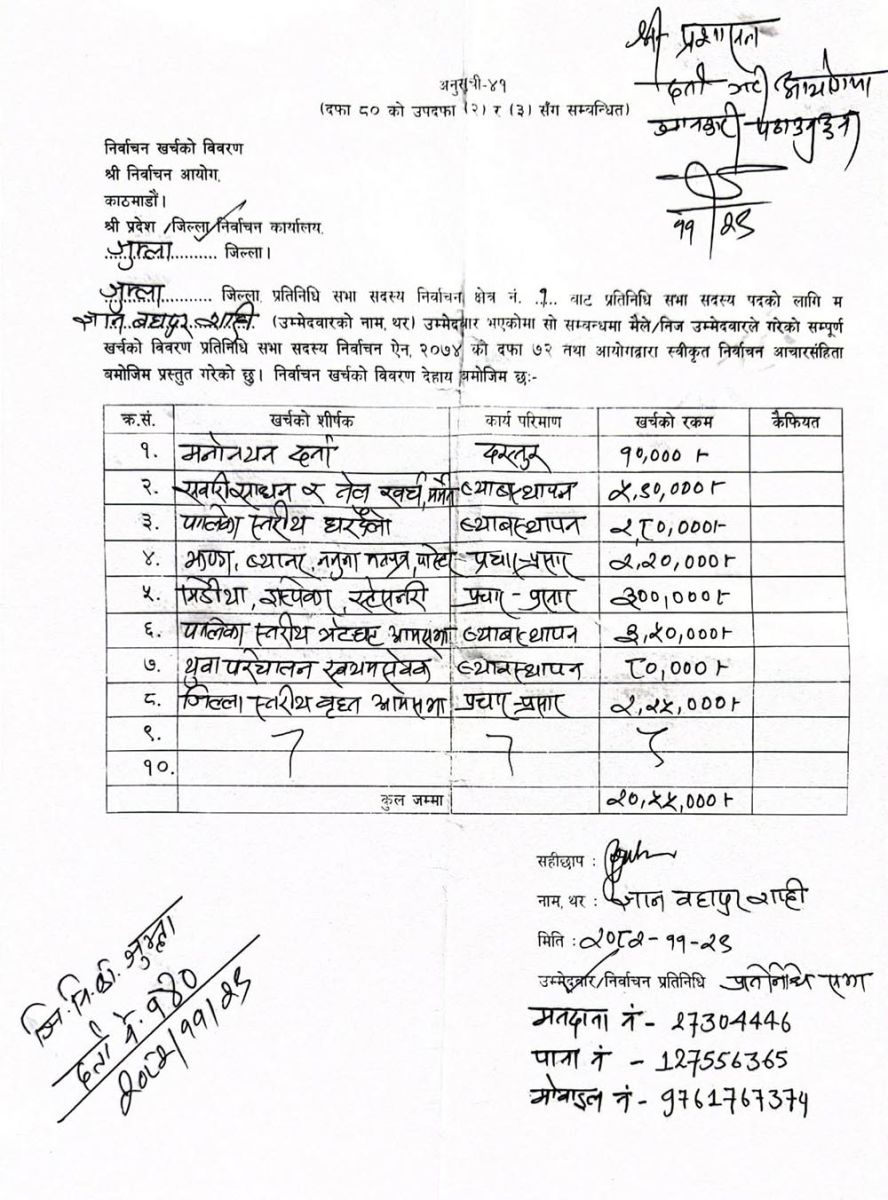 श्री प्रशासन
दर्ता गरी आयोगमा
जानकारी पठाउनुहुन
११/२९
अनुसूची-४१
(दफा ८० को उपदफा (२) र (३) सँग सम्बन्धित)
निर्वाचन खर्चको विवरण
श्री निर्वाचन आयोग,
काठमाडौं।
श्री प्रदेश /जिल्ला/निर्वाचन कार्यालय,
जुम्ला जिल्ला।
जुम्ला जिल्ला, प्रतिनिधि सभा सदस्य निर्वाचन क्षेत्र नं. १ बाट प्रतिनिधि सभा सदस्य पदको लागि म
ज्ञान बहादुर शाही (उम्मेदवारको नाम, थर) उम्मेदवार भएकोमा सो सम्बन्धमा मैले/निज उम्मेदवारले गरेको सम्पूर्ण
खर्चको विवरण प्रतिनिधि सभा सदस्य निर्वाचन ऐन, २०७४ को दफा ७२ तथा आयोगद्वारा स्वीकृत निर्वाचन आचारसंहिता
बमोजिम प्रस्तुत गरेको छु। निर्वाचन खर्चको विवरण देहाय बमोजिम छ:-
क्र.सं. खर्चको शीर्षक कार्य परिमाण खर्चको रकम कैफियत
१. मनोनयन दर्ता दस्तुर १०,०००।-
२. सवारी साधन र तेल खर्च, ब्यावस्थापन ५,९०,०००।-
३. पालिका स्तरीय घरदैलो ब्यावस्थापन २८०,०००।-
४. झण्डा, ब्यानर, नमुना मतपत्र, पोस्टर प्रचार-प्रसार २,२०,०००।-
५. मिडीया, स्टेसनरी प्रचार-प्रसार ३००,०००।-
६. पालिका स्तरीय भेटघाट आमसभा ब्यावस्थापन ३,५०,०००।-
७. युवा परिचालन स्वयमसेवक ब्यावस्थापन ८०,०००।-
८. जिल्ला स्तरीय वृहत आमसभा प्रचार-प्रसार २,२५,०००।-
९.
१०.
कुल जम्मा २०,५५,०००।-
सहीछाप :
नाम, थर : ज्ञान बहादुर शाही
मिति : २०८२-११-२९
उम्मेदवार/निर्वाचन प्रतिनिधि प्रतिनिधि सभा
मतदाता नं - 27304446
पाना नं - 127556365
मोबाइल नं - 9761767374
जि.नि.का. जुम्ला
दर्ता नं. १४०
२०८२/११/२९